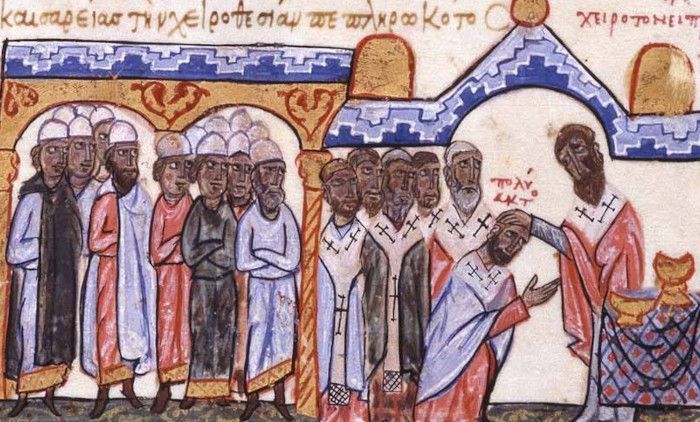 καισαρείας τὴν χειροθεσίαν πεπληρωκότο
χειροτονεῖ π
πολύ
ευκτ